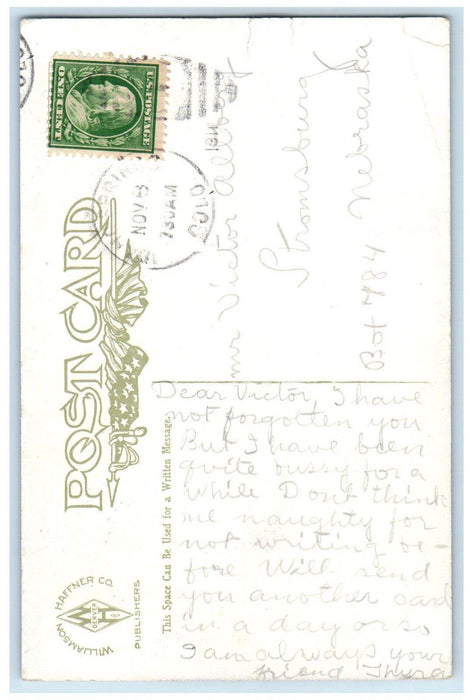 U.S. POSTAGE
ONE CENT
NOV 8
730 AM
COLO
1911
POST CARD
Mr Victor
Stromsburg
Nebraska
Box 484
This Space Can Be Used for a Written Message.
WILLIAMSON HAFFNER CO.
DENVER
PUBLISHERS
Dear Victor, I have
not forgotten you
But I have been
quite bussy for a
while Dont think
me naughty for
not writing be-
fore Will send
you another card
in a day or so
I am always your
friend Thyra